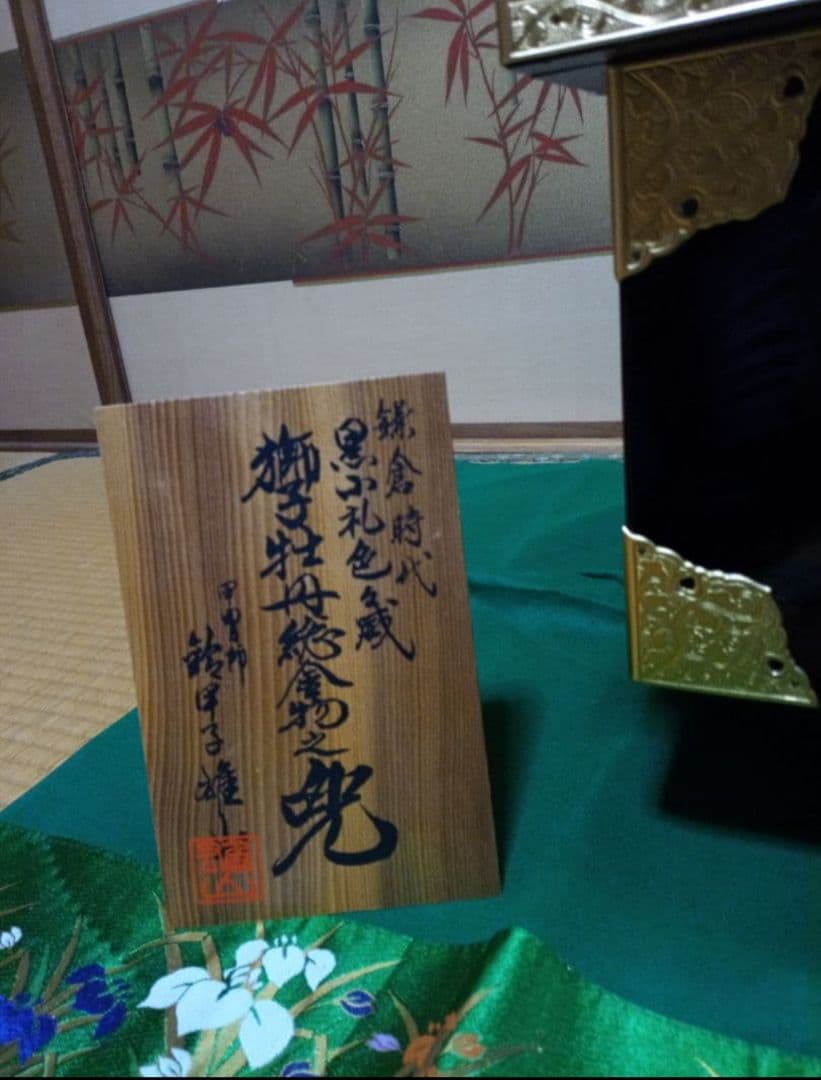 鎌倉時代
黒小札色々威
獅子牡丹総金物之兜
甲冑師
鈴甲子雄山